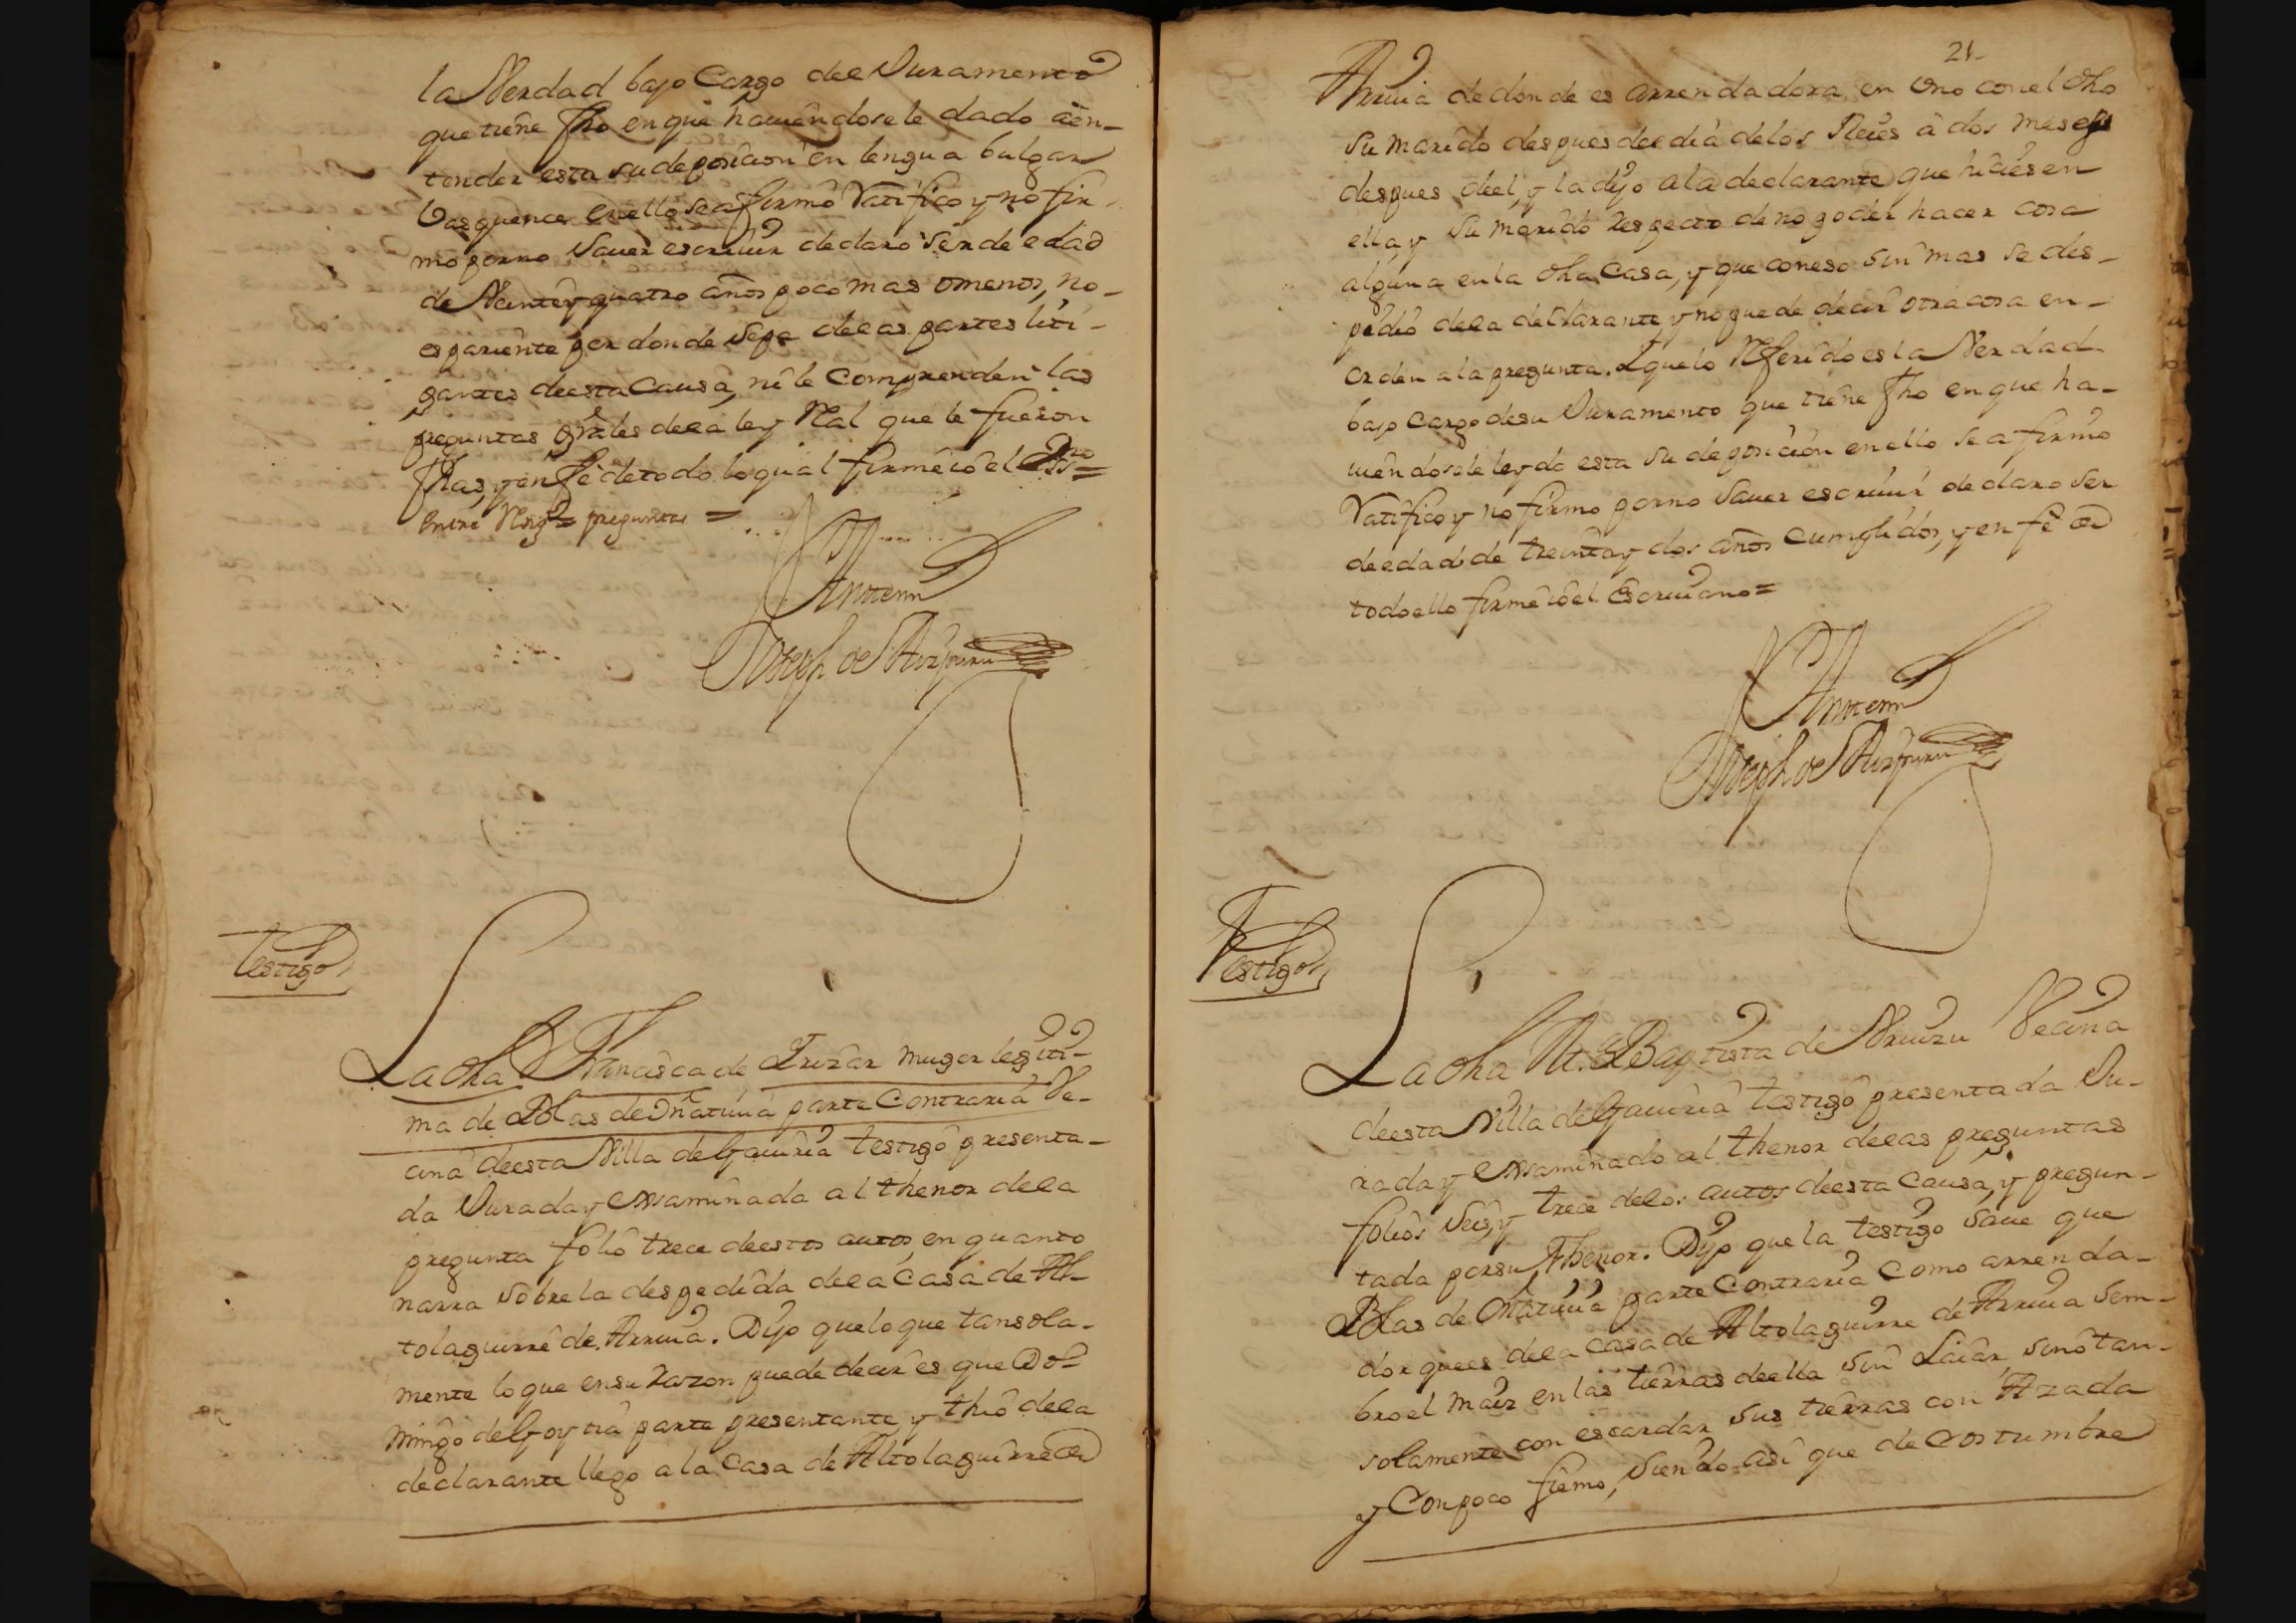 la Verdad bajo Cargo del Juramento
que tiene fho en que haviendosele dado aen-
tender esta su deposicion en lengua bulgar
Vasquence en ello se afirmó Ratifico y no fir-
mo por no saver escrivir declaro ser de edad
de Veinte y quatro años poco mas omenos, no-
es pariente por donde sepa delas partes liti-
gantes deesta Causa, ni le Comprenden las
preguntas grâles dela ley Real que le fueron
fhas, y en feè detodo lo qual firmè io el Ssno=
Entre Reng.s= preguntas =
Antemi
Joseph de Aizpuru
Testigo
La dha Francisca de Irizar muger legiti-
ma de Blas de Oñativia parte Contraria Ve-
cina deesta Villa de Gaviria testigo presenta-
da Jurada y exsaminada al thenor dela
pregunta folio trece deestos autos, en quanto
narra sobre la despedida dela Casa de Al-
tolaguirre de Arriia. Dijo que lo que tansola-
mente lo que en su razon puede decir es que Do-
mingo de Goytia parte presentante y thio dela
declarante llego a la Casa de Altolaguirre de
21-
Arriia de donde es arrendadora en Uno con el dho
su marido despues del dia delos Reies â dos meses
despues deel, y la dijo a la declarante que hiciesen
ella y su marido respecto de no poder hacer cosa
alguna en la dha Casa, y que coneso sin mas se des-
pedio dela declarante y no puede decir otra cosa en-
orden a la pregunta. I que lo Referido es la Verdad
bajo cargo de su Juramento que tiene fho en que ha-
viendosele leydo esta su deposicion en ello se afirmo
Ratifico y no firmo por no saver escrivir declaro ser
de edad de treinta y dos años cumplidos, y en fè de
todo ello firmè io el Escrivano=
Antemi
Joseph de Aizpuru
Testigo
La dha M.a Baptista de Vecina
deesta Villa de Gaviria testigo presentada Ju-
rada y exsaminado al thenor delas preguntas
folios seis, y trece delos autos deesta Causa, y pregun-
tada por su thenor. Dijo que la testigo save que
Blas de Oñativia parte Contraria como arrenda-
dor que es dela Casa de Altolaguirre de Arriia sem-
bro el maiz en las tierras deella sin Laiar, sino tan-
solamente con escardar sus tierras con Azada
y Con poco fiemo, siendo asi que de Costumbre